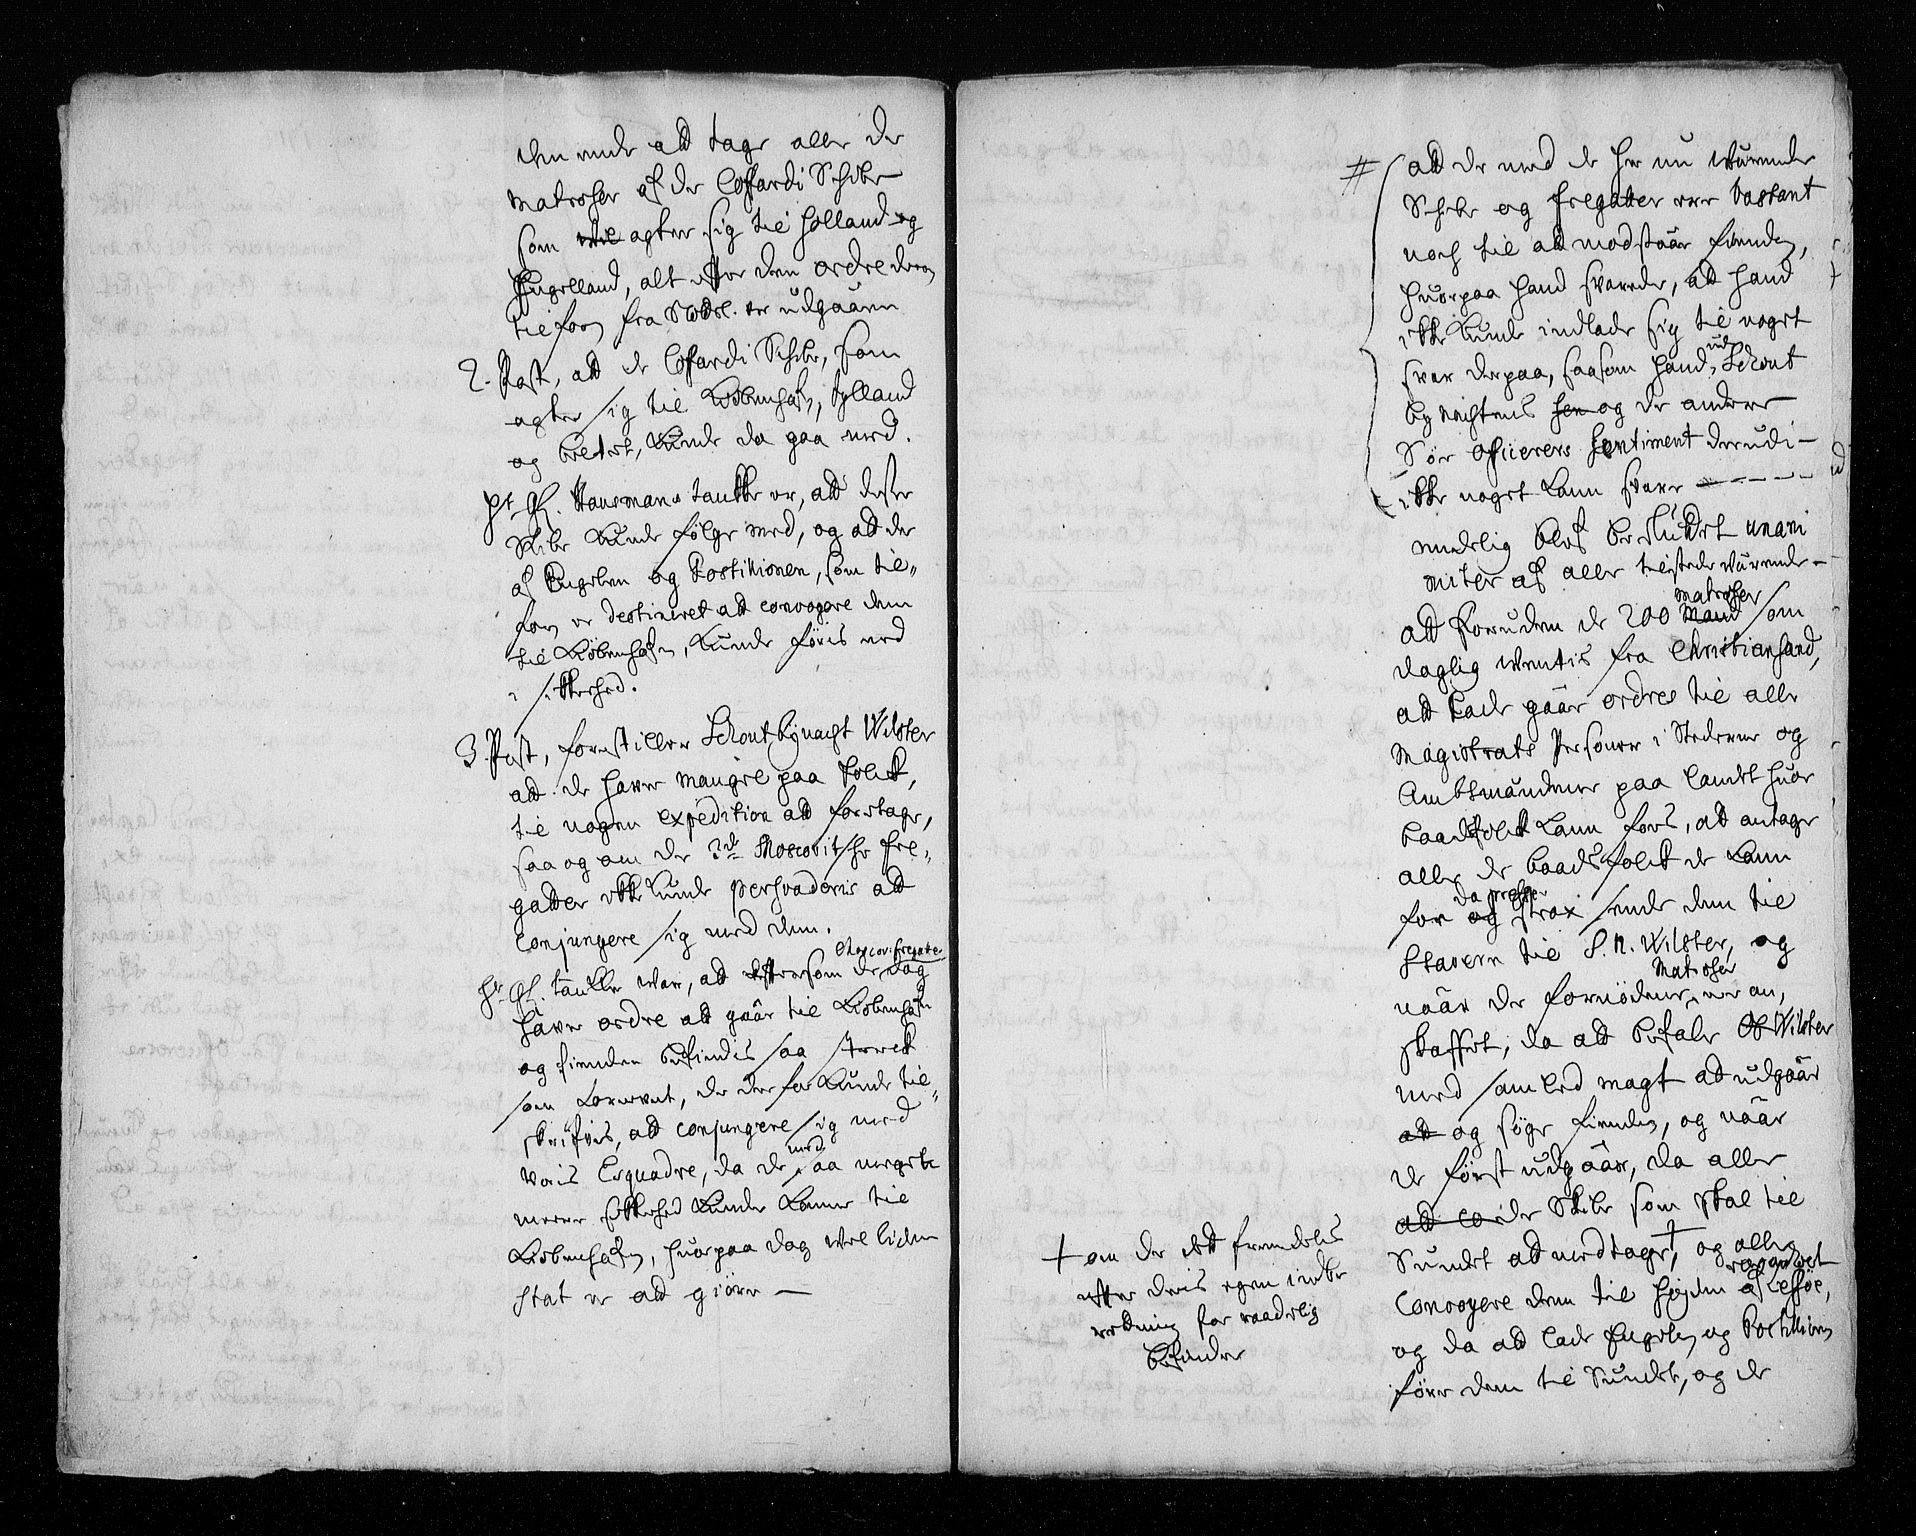 den ende att tage alle de
matroser af de Coffardi Schibe
som till agter sig til Holland og
Engelland, alt efter den ordre derom
tilforn fra Slodtl. er udgaaen
2. Post, att de Coffardi Schibe, som
agter sig til Kiøbenhafn, Jylland
og
Kunde da gaa med.
Hr. Gl. Hausmans tancke er, att desse
Skibe kunde følge med, og att de
af Engelen og Postilionen, som til„
forn er destineret att convoyere dem
til Kiøbenhafn, kunde føris med
i sikkerhed.
3. Post, forestiller Schoutbynacht Wilster
att de haver mangel paa folck,
til nogen expedition att foretage,
saa og om de 3de Moscovitshe fre„
gatter ikke kunde persvaderis att
Conjungere sig med dem.
Hr. Gl. tancke war, att efttersom de dog
Moscov: fregatte
haver ordre att gaar til Kiøbenhafn
og fienden befindis saa sterck
som bevent, de derfor kunde til„
skrifvis, att conjungere sig med
voris Esquadre, da de saa meget
med
meere sikkerhed kunde komme til
Kiøbenhafn, huorpaa dog vel liden
stat er att giøre —
# att de med de her nu værende
Schibe og fregatter var bastant
noch til att modstaar fienden,
huorpaa hand svarede, att hand
ikke kunde indlade sig til noget
svar derpaa, saasom hand, Schout
ud
bynachtens hen og de andere
Søe Officerers Sentiment derudi
ikke noget kand svare – – – – –
endelig blef besluttet unani
miter af alle tilstedeværende –
att foruden de 200 Mand som
matroser
daglig ventis fra Christiansand,
att lade gaar ordres til alle
Magistrats Personer i Stederne og
Ambtmændene paa landet huor
baadsfolck kand faas, at antage
alle de baadsfolck de kand
faa og strax sende dem til
da presse
Stavern til S. N. Wilster, og
naar de fornødene er an,
Matroser
skaffet, da att befale Wilster
med samled magt at udgaar
att og søge fienden, og naar
de først udgaar, da alle
att co de Skibe som skal til
Sundet att medtage, † og alle
Convoyere dem til høyden af Lessøe,
og da att lade Engelen og Postillion
føre dem til Sundet, og de
† om de det fremdelis
efter deris egen indbe
retning for raadelig
befinder